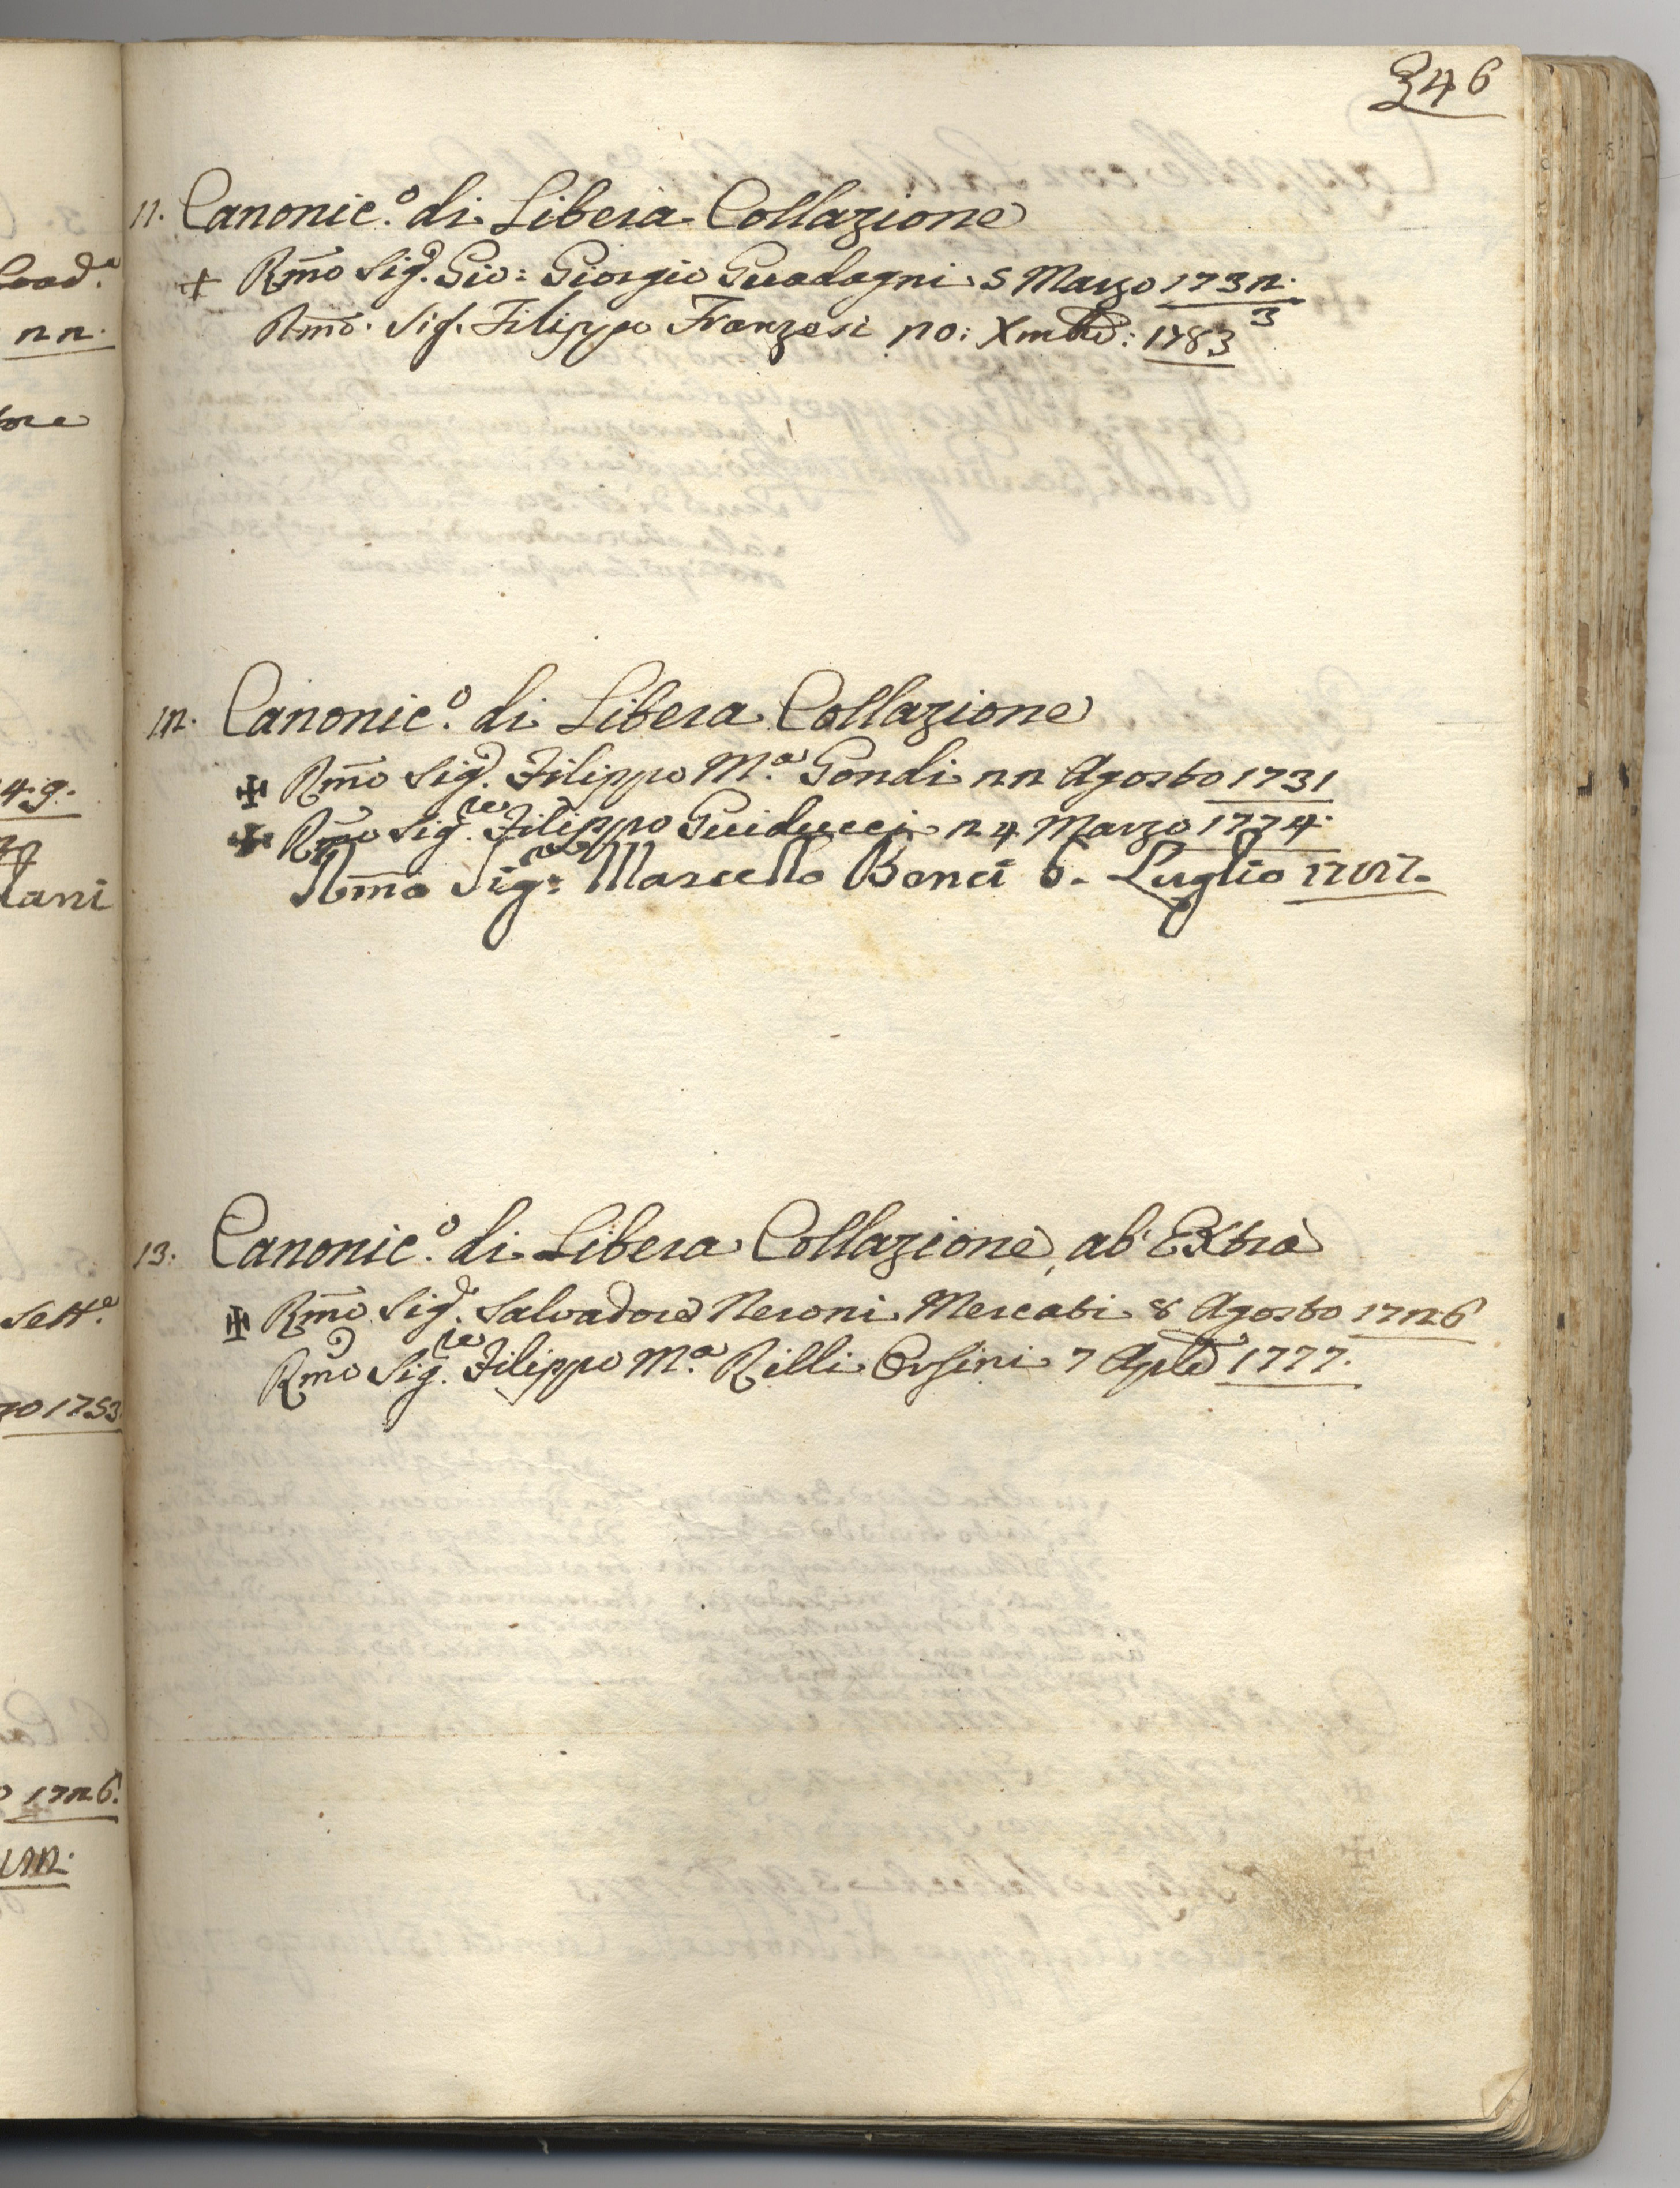 246
11. Canonic.o di Libera Collazione
+ Rmo Sig.r Gio: Giorgio Guadagni 5 Marzo 1732.
3
Rmo. Sig. Filippo Franzesi 20: Xmbre: 1783
12. Canonic.o di Libera Collazione
✠ Rmo Sig.r Filippo M.a Gondi 22 Agosto 1731
✠ Rmo Sig.re Filippo Guiducci 24 Marzo 1774.
Rmo Sig:re Marcello Benci 6. Luglio
13. Canonic.o di Libera Collazione, ab Extra
✠ Rmo Sig.r Salvadore Neroni Mercati 8 Agosto 1726
Rmo Sig.re Filippo M.a Rilli Orsini 7 Aple 1777.